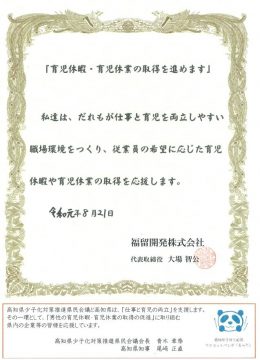 「育児休暇・育児休業の取得を進めます」
私達は、だれもが仕事と育児を両立しやすい
職場環境をつくり、従業員の希望に応じた育児
休暇や育児休業の取得を応援します。
令和元年8月21日
福留開発株式会社
代表取締役 大場 智公
高知県少子化対策推進県民会議と高知県は、「仕事と育児の両立」を支援します。
その一環として、「男性の育児休暇・育児休業の取得の促進」に取り組む
県内の企業等の皆様を応援しています。
高知県少子化対策推進県民会議会長 青木 章泰
高知県知事 尾﨑 正直